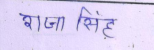 राजा सिंह